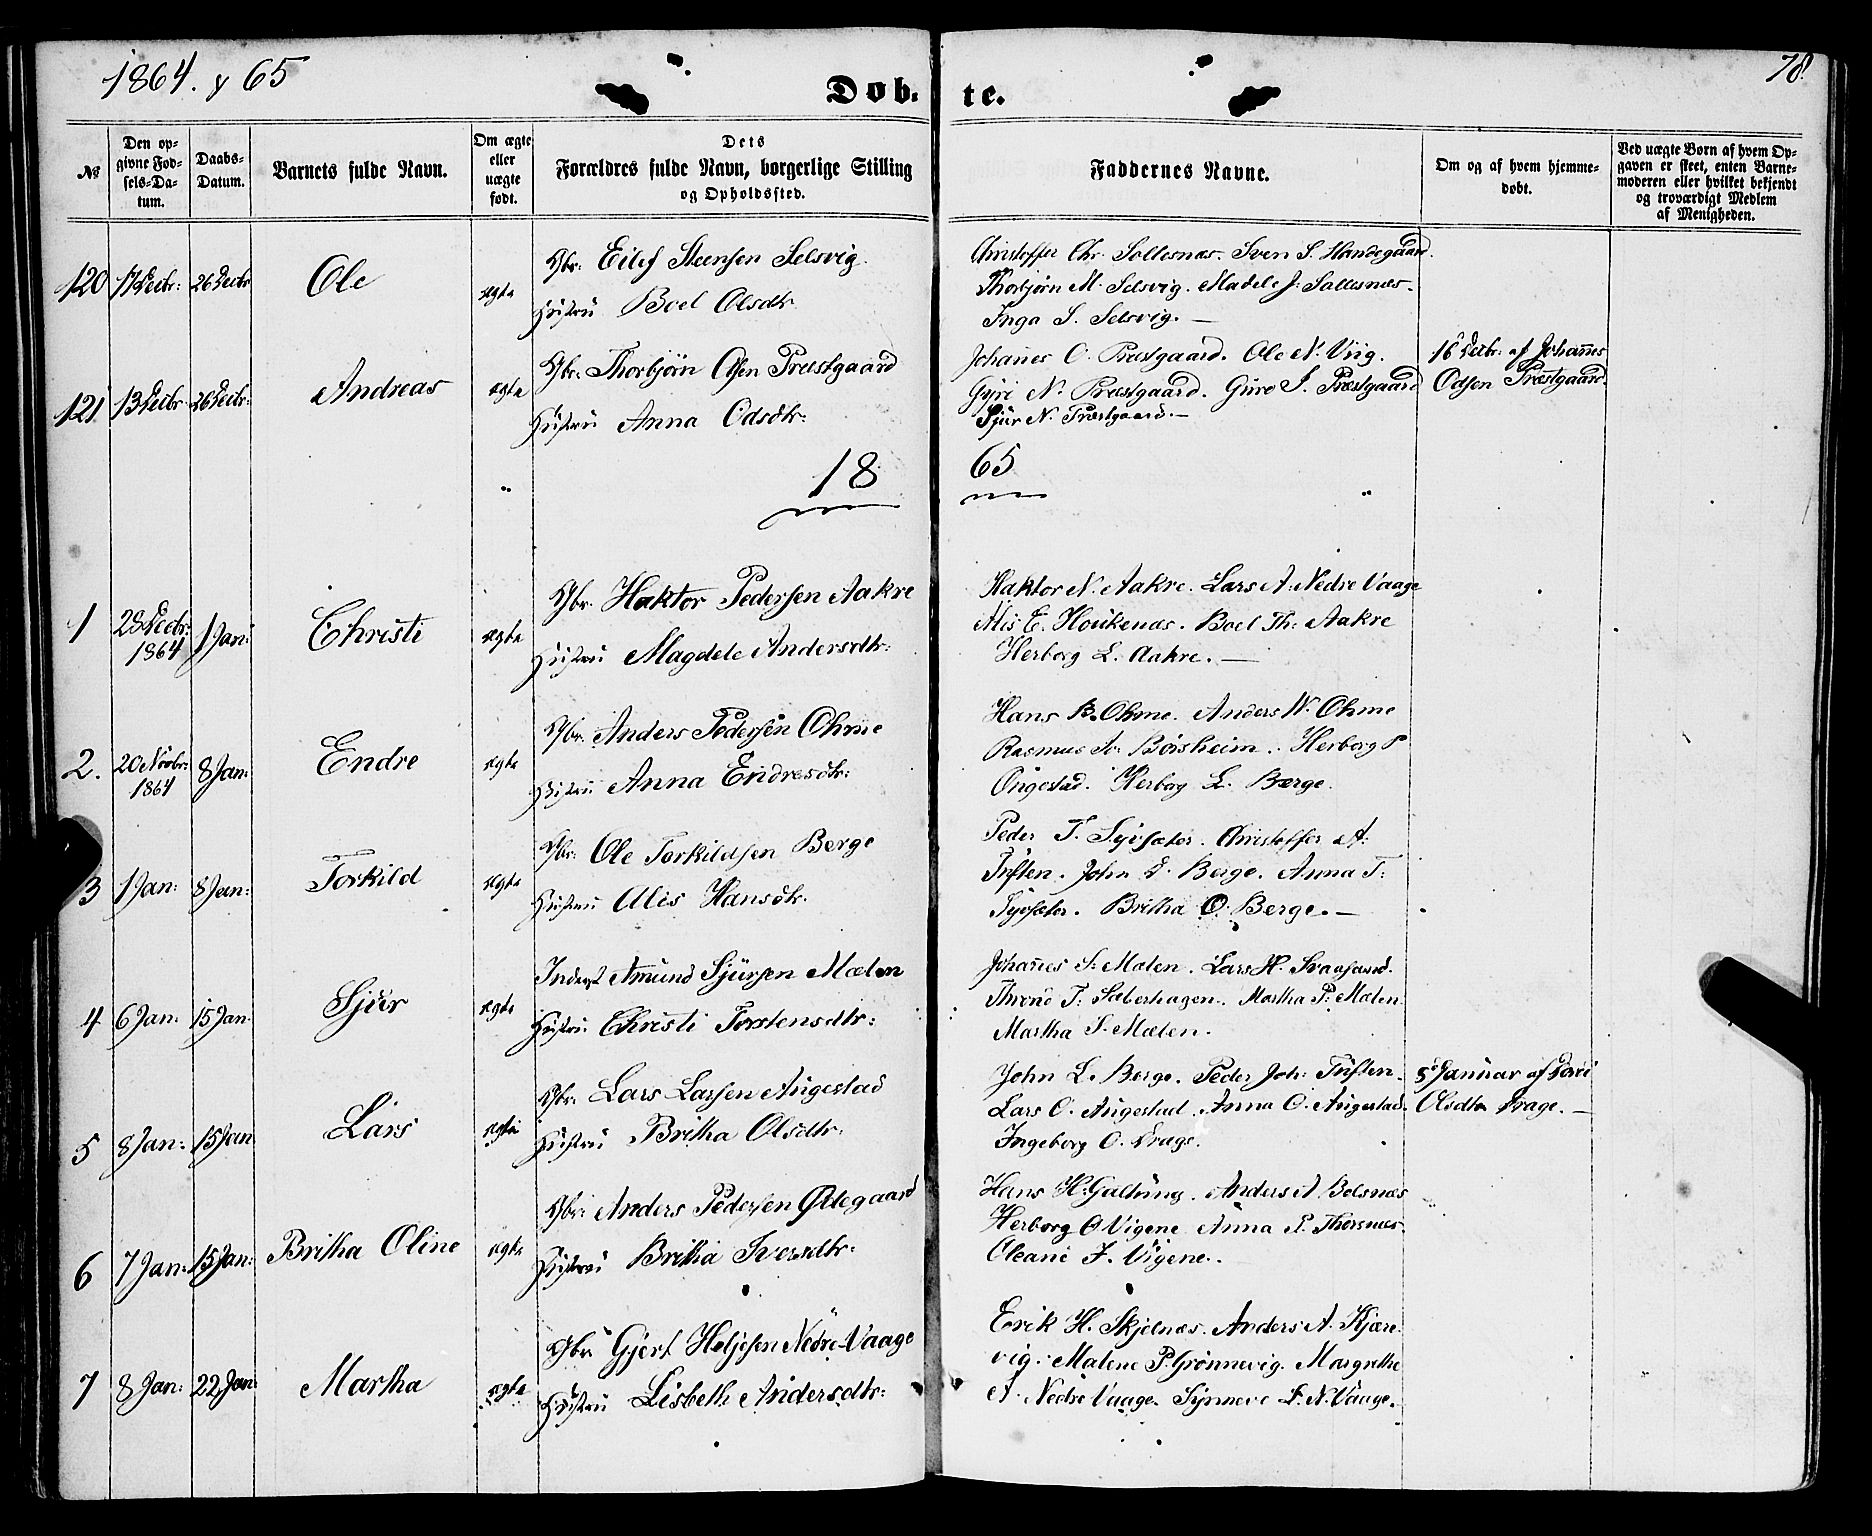 1864. & 65
78.
Døb- te.
No
Den opgivne Fødsels-Datum.
Daabs-Datum.
Barnets fulde Navn.
Om ægte eller uægte født.
Dets Forældres fulde Navn, borgerlige Stilling og Opholdssted.
Faddernes Navne.
Om og af hvem hjemmedøbt.
Ved uægte Børn af hvem Opgaven er skeet, enten Barnemoderen eller hvilket bekjendt og troværdigt Medlem af Menigheden.
120 17 Decbr: 26 Decbr Ole ægte Gbr: Eilef Steensen Selsvig
Hustru Boel Olsdtr.
Christoffer Chr. Sollesnæs. Sven S. Handegaard.
Thorbjørn M. Selsvig. Madele J. Sollesnæs.
Inga S. Selsvig. —
121 13 Decbr 26 Decbr: Andreas ægte Gbr: Thorbjörn Olsen Præstgaard
Hustru Anna Odsdtr:
Johannes O. Præstgaard. Ole N. Viig.
Gyri N. Præstgaard. Guro S. Præstgaard
Sjur N. Præstgaard. —
16 Decbr. af Johannes
Odsen Præstgaard.
18 65
1 28 Decbr: 1864 1 Jan: Christi ægte Gbr. Haktor Pedersen Aakre
Hustru Magdele Andersdtr:
Haktor N. Aakre. Lars A. Nedre Vaage
Alis E. Houkenæs. Boel Th: Aakre
Herborg L. Aakre. —
2. 20 Novbr: 1864 8 Jan: Endre ægte Gbr. Anders Pedersen Ohme
Hustru Anna Endresdtr:
Hans B. Ohme. Anders N. Ohme
Rasmus Börsheim. Herborg P
Öngestad. Herborg L. Berge.
3 1 Jan: 8 Jan: Torkild ægte Gbr: Ole Torkildsen Berge
Hustru Alis Hansdtr.
Peder T. Christoffer A.
Tuften. John D. Berge. Anna T:
Britha O. Berge. —
4 6 Jan: 15 Jan Sjur ægte Inderst Amund Sjursen Mælen
Hustru Christi Torstensdtr:
Johannes S. Mælen. Lars H.
Thrond T. Martha P. Mælen.
Martha S. Mælen.
5 8 Jan: 15 Jan Lars ægte Gbr: Lars Larsen Augestad
Hustru Britha Olsdtr:
John L. Berge. Peder Joh: Tuften.
Lars O. Augestad. Anna O. Augestad.
Ingeborg O. Drage.
8 Januar af
Olsdtr Drage. —
6 7 Jan: 15 Jan: Britha Oline ægte Gbr: Anders Pedersen Ødegaard
Hustru Britha Iversdtr:
Hans H. Galtung. Anders A. Belsnæs
Herborg O Vigene Anna P. Thorsnæs.
Oleane J. Vigene.
7 8 Jan: 22 Jan Martha ægte Gbr Gjert Heljesen Nedre Vaage
Hustru Lisbeth Andersdtr:
Erik H. Skjelnæs. Anders A. Kjære-
vig. Malene P. Grönnevig. Margrethe
A. Nedre Vaage. Synneve L. N. Vaage.